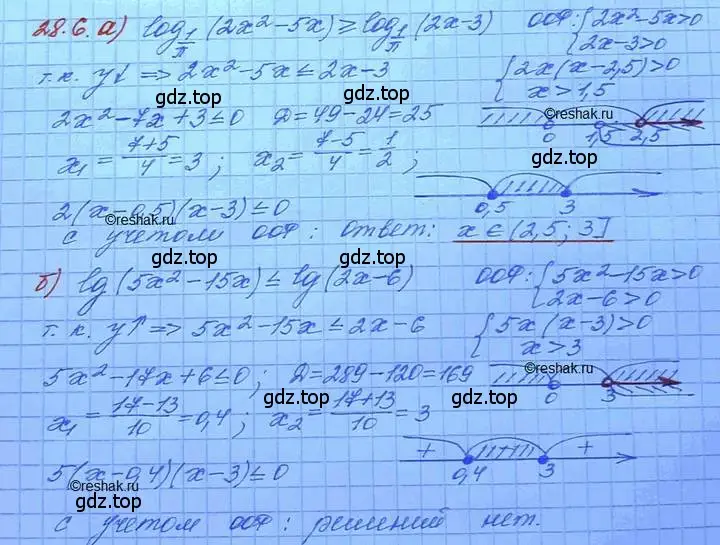 28.6. а) log 1/π (2x² - 5x) ≥ log 1/π (2x - 3) ООФ: { 2x² - 5x > 0
2x - 3 > 0
т.к. y↓ => 2x² - 5x ≤ 2x - 3 { 2x(x - 2,5) > 0
x > 1,5
gdz.top gdz.top
2x² - 7x + 3 ≤ 0 D = 49 - 24 = 25 ©reshak.ru
x₁ = 7+5/4 = 3; x₂ = 7-5/4 = 1/2; 0 1,5 2,5
gdz.top
2(x - 0,5)(x - 3) ≤ 0 0,5 3
©reshak.ru
с учетом ООФ: ответ: x ∈ (2,5; 3]
gdz.top gdz.top
б) lg(5x² - 15x) ≤ lg(2x - 6) ООФ: { 5x² - 15x > 0
2x - 6 > 0
т.к. y↑ => 5x² - 15x ≤ 2x - 6 { 5x(x - 3) > 0
x > 3
gdz.top
5x² - 17x + 6 ≤ 0; D = 289 - 120 = 169 ©reshak.ru
x₁ = 17-13/10 = 0,4; x₂ = 17+13/10 = 3 0 3
gdz.top gdz.top
5(x - 0,4)(x - 3) ≤ 0 + + 0,4 3
©reshak.ru
gdz.top
с учетом ООФ: решений нет.